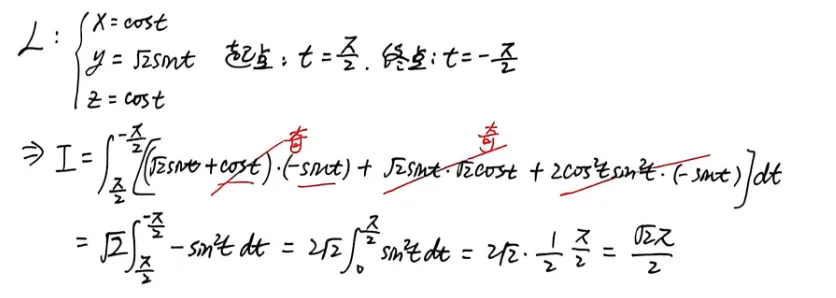 L: { x = cost
y = √2 sint 起点: t = π/2. 终点: t = -π/2
z = cost
奇 奇
⇒ I = ∫_{π/2}^{-π/2} [(√2 sint + cost)·(-sint) + √2 sint·√2 cost + 2cos²t sin²t·(-sint)] dt
= √2 ∫_{π/2}^{-π/2} -sin²t dt = 2√2 ∫_0^{π/2} sin²t dt = 2√2 · 1/2 π/2 = √2π/2